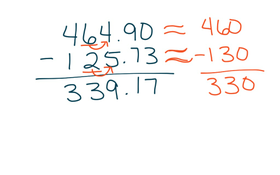 464.90 ≈ 460
- 125.73 ≈ -130
339.17 330